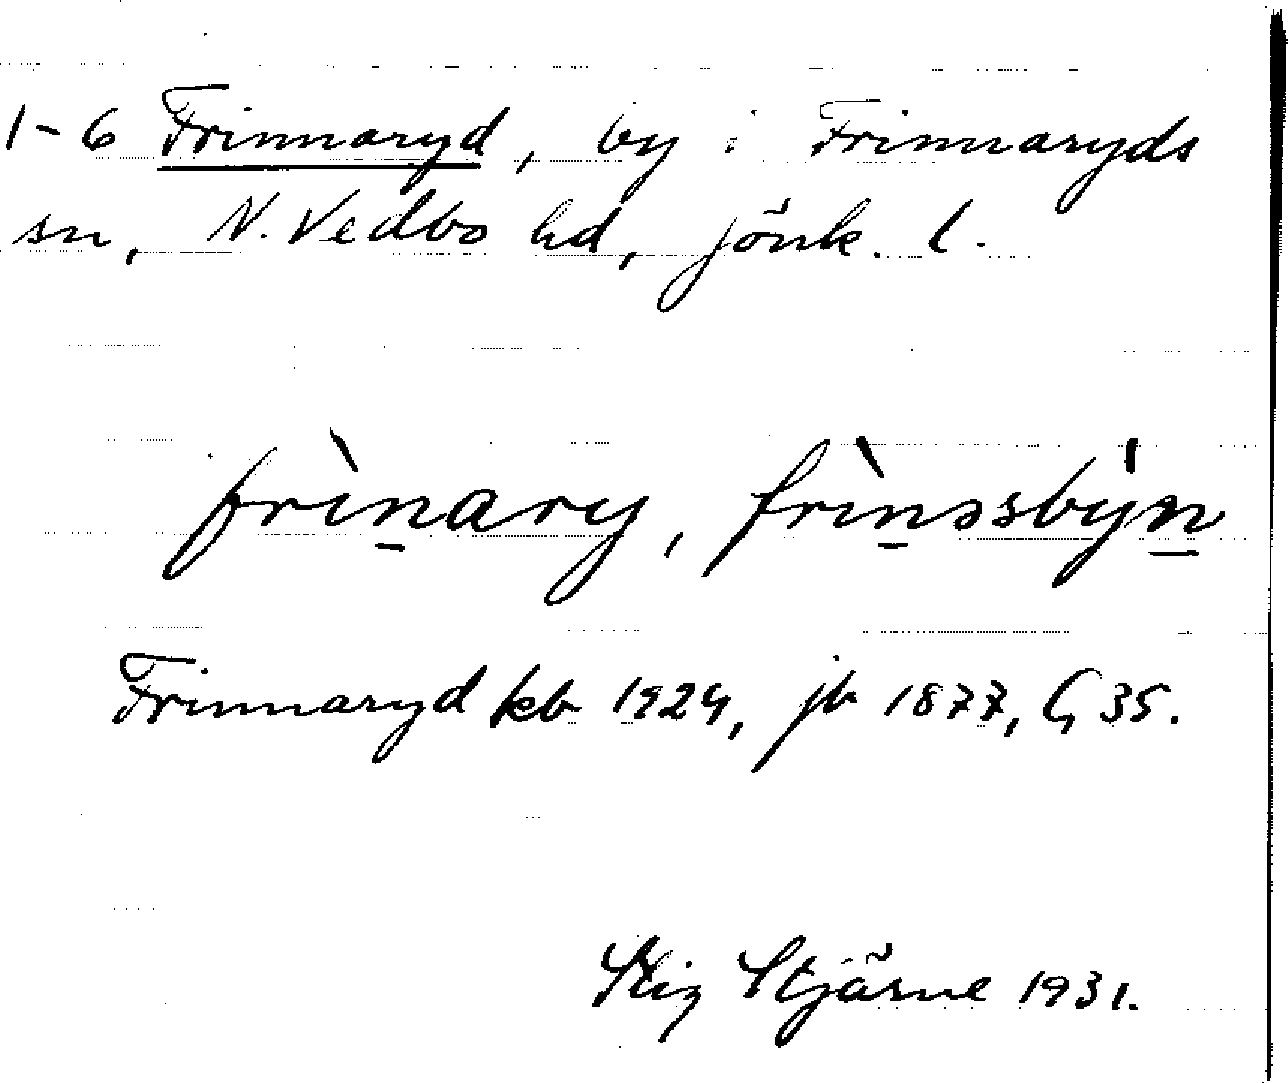 1-6 Frinnaryd, by i Frinnaryds
sn, N. Vedbo hd, Jönk. l.
frìn̲ary, frìn̲əsbýn̲
Frinnaryd kb 1924, jb 1877, G 35.
Stig Stjärne 1931.